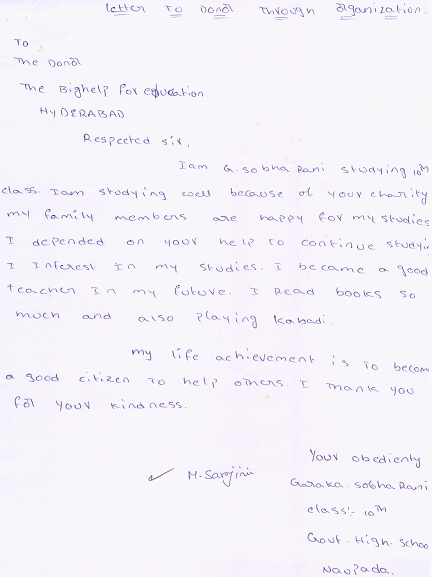 letter To Donor Through organization.
To
The Donor
The Bighelp for education
HYDERABAD
Respected sir,
Iam G. sobha Rani studying 10th
class. Iam studying well because of your charity
my family members are happy for my studies
I depended on your help to continue studyi
I Interest In my studies. I became a good
teacher In my future. I Read books so
much and also playing kabadi.
my life achievement is to becom
a good citizen To help others. I thank you
for your kindness.
Your obedienty
M. Sarojini
Goraka. Sobha Rani
class:- 10th
Govt. High. Schoo
Naupada.